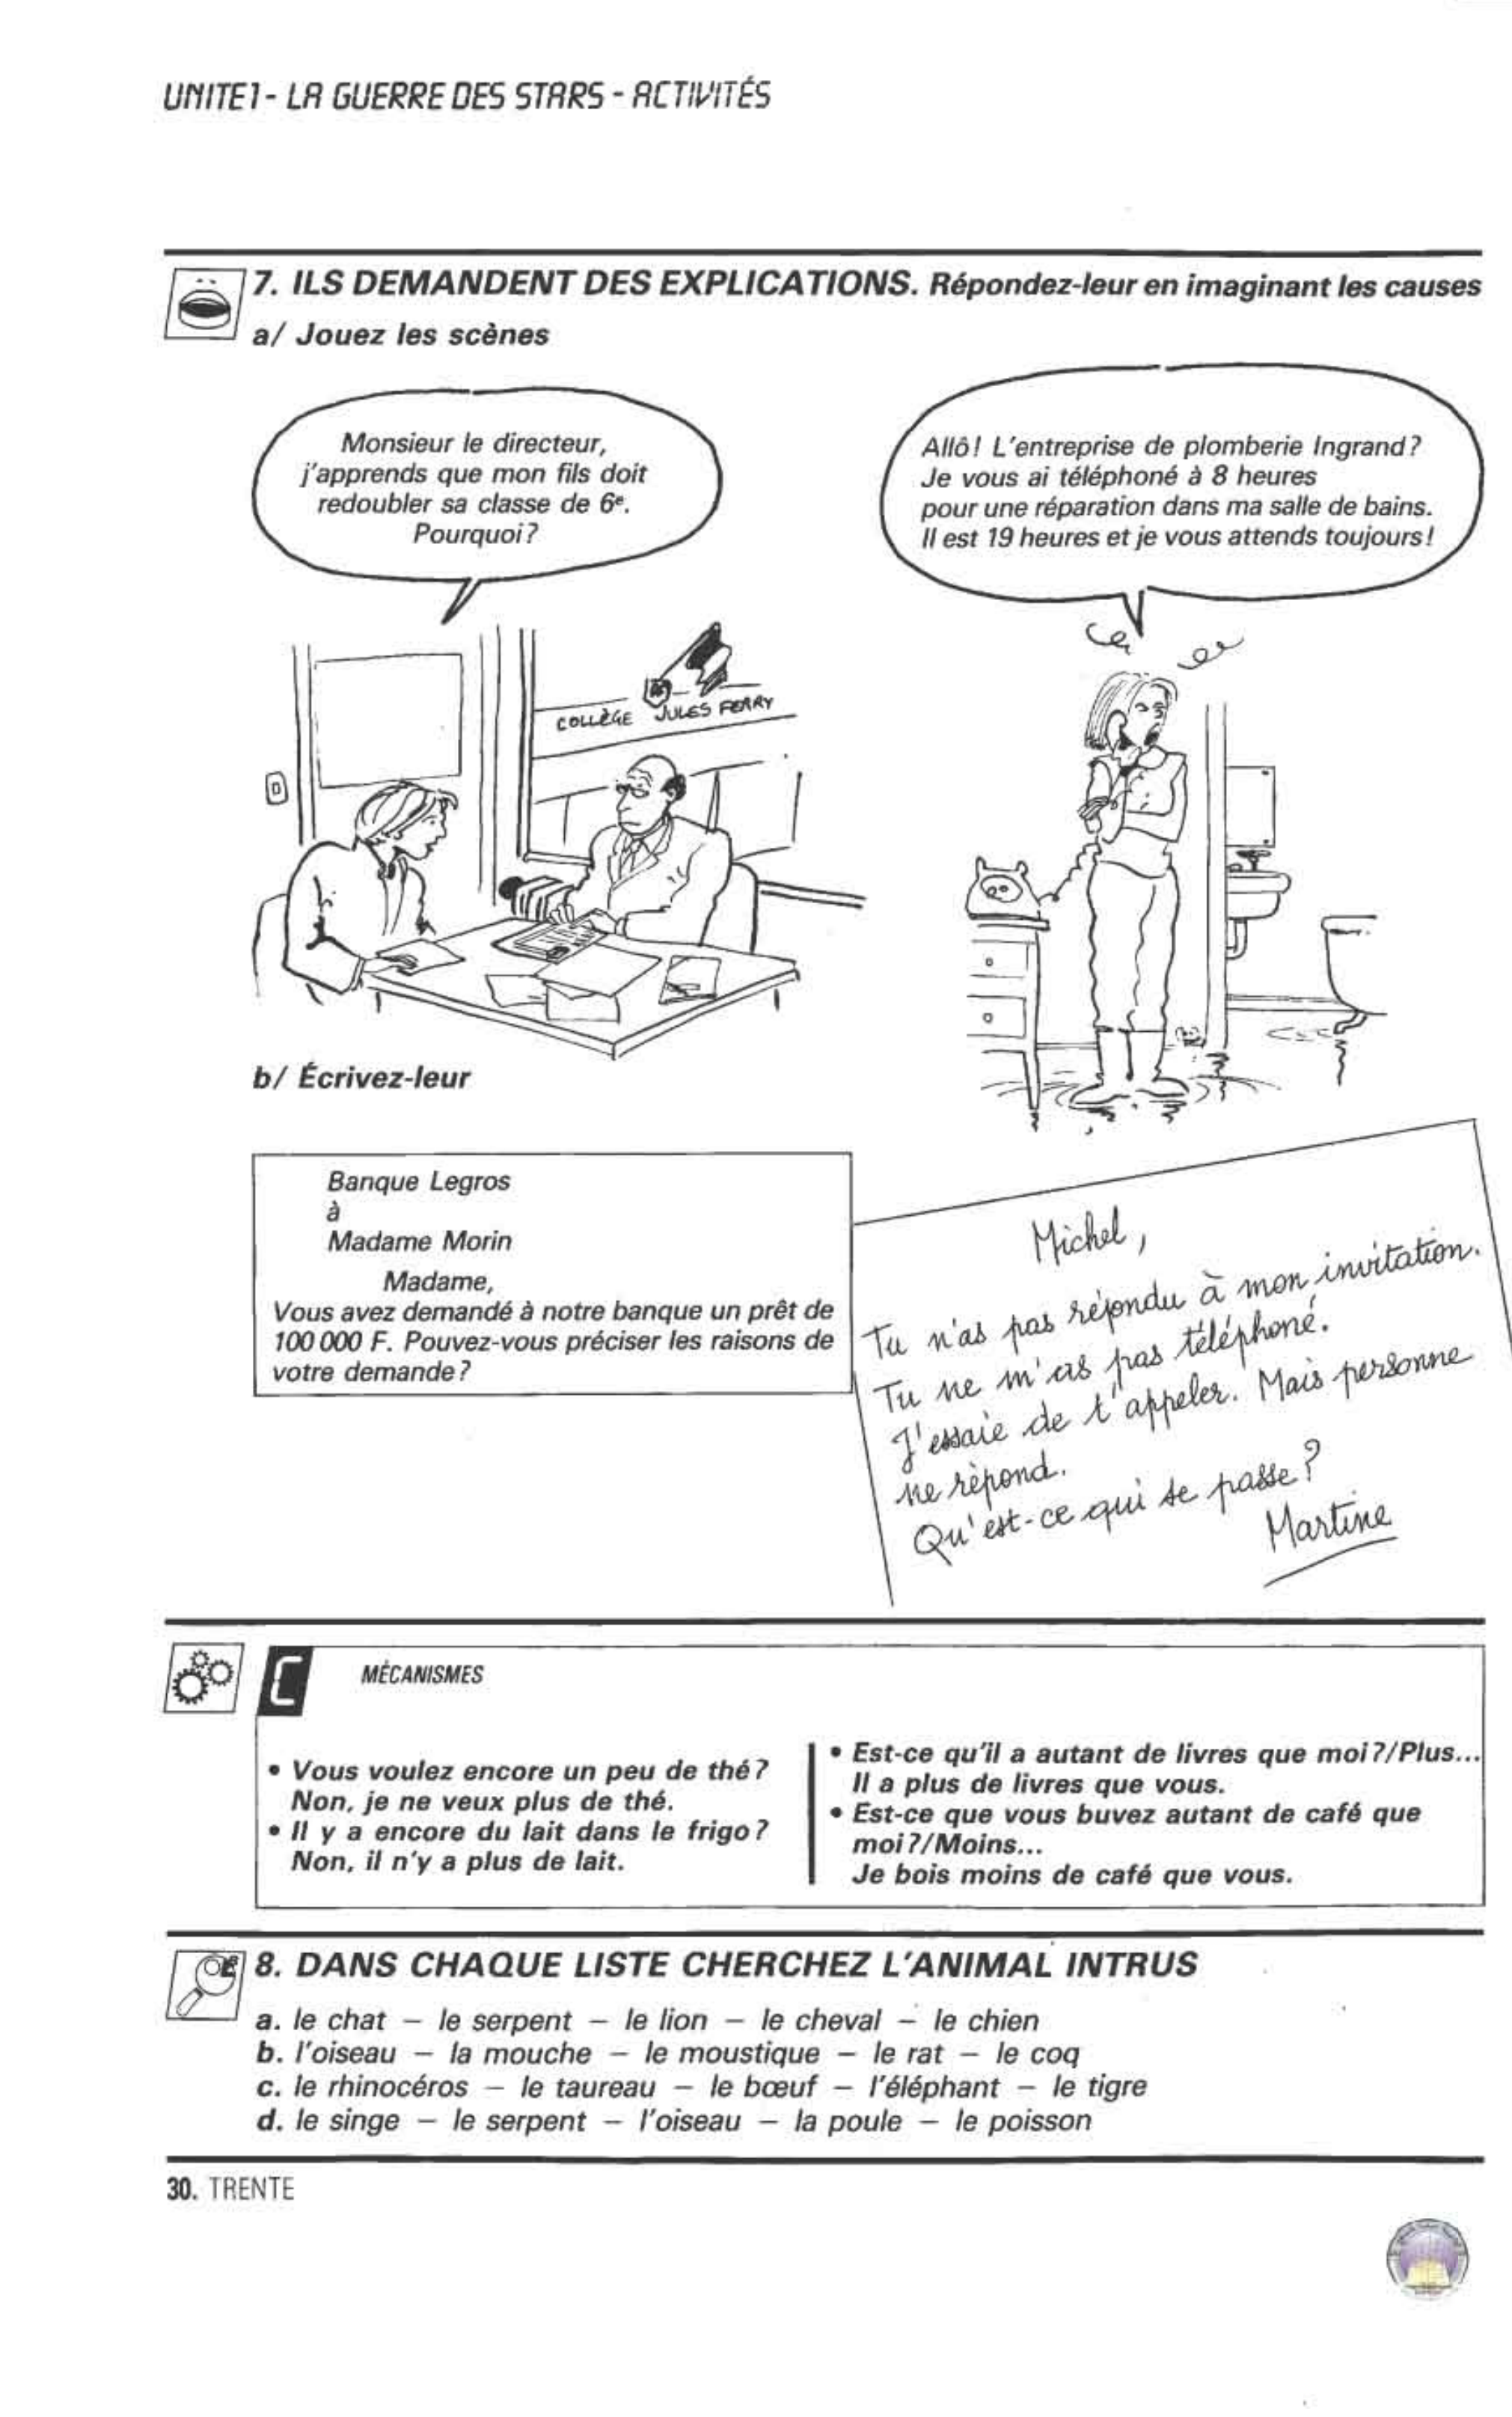 UNITE1 - LA GUERRE DES STARS - ACTIVITÉS
7. ILS DEMANDENT DES EXPLICATIONS. Répondez-leur en imaginant les causes
a/ Jouez les scènes
Monsieur le directeur,
j'apprends que mon fils doit
redoubler sa classe de 6e.
Pourquoi?
Allô! L'entreprise de plomberie Ingrand?
Je vous ai téléphoné à 8 heures
pour une réparation dans ma salle de bains.
Il est 19 heures et je vous attends toujours!
COLLÈGE JULES FERRY
b/ Écrivez-leur
Banque Legros
à
Madame Morin
Madame,
Vous avez demandé à notre banque un prêt de
100 000 F. Pouvez-vous préciser les raisons de
votre demande?
Michel,
Tu n'as pas répondu à mon invitation.
Tu ne m'as pas téléphoné.
J'essaie de t'appeler. Mais personne
ne répond.
Qu'est-ce qui se passe?
Martine
C MÉCANISMES
• Vous voulez encore un peu de thé?
Non, je ne veux plus de thé.
• Il y a encore du lait dans le frigo?
Non, il n'y a plus de lait.
• Est-ce qu'il a autant de livres que moi?/Plus...
Il a plus de livres que vous.
• Est-ce que vous buvez autant de café que
moi?/Moins...
Je bois moins de café que vous.
8. DANS CHAQUE LISTE CHERCHEZ L'ANIMAL INTRUS
a. le chat – le serpent – le lion – le cheval – le chien
b. l'oiseau – la mouche – le moustique – le rat – le coq
c. le rhinocéros – le taureau – le bœuf – l'éléphant – le tigre
d. le singe – le serpent – l'oiseau – la poule – le poisson
30. TRENTE